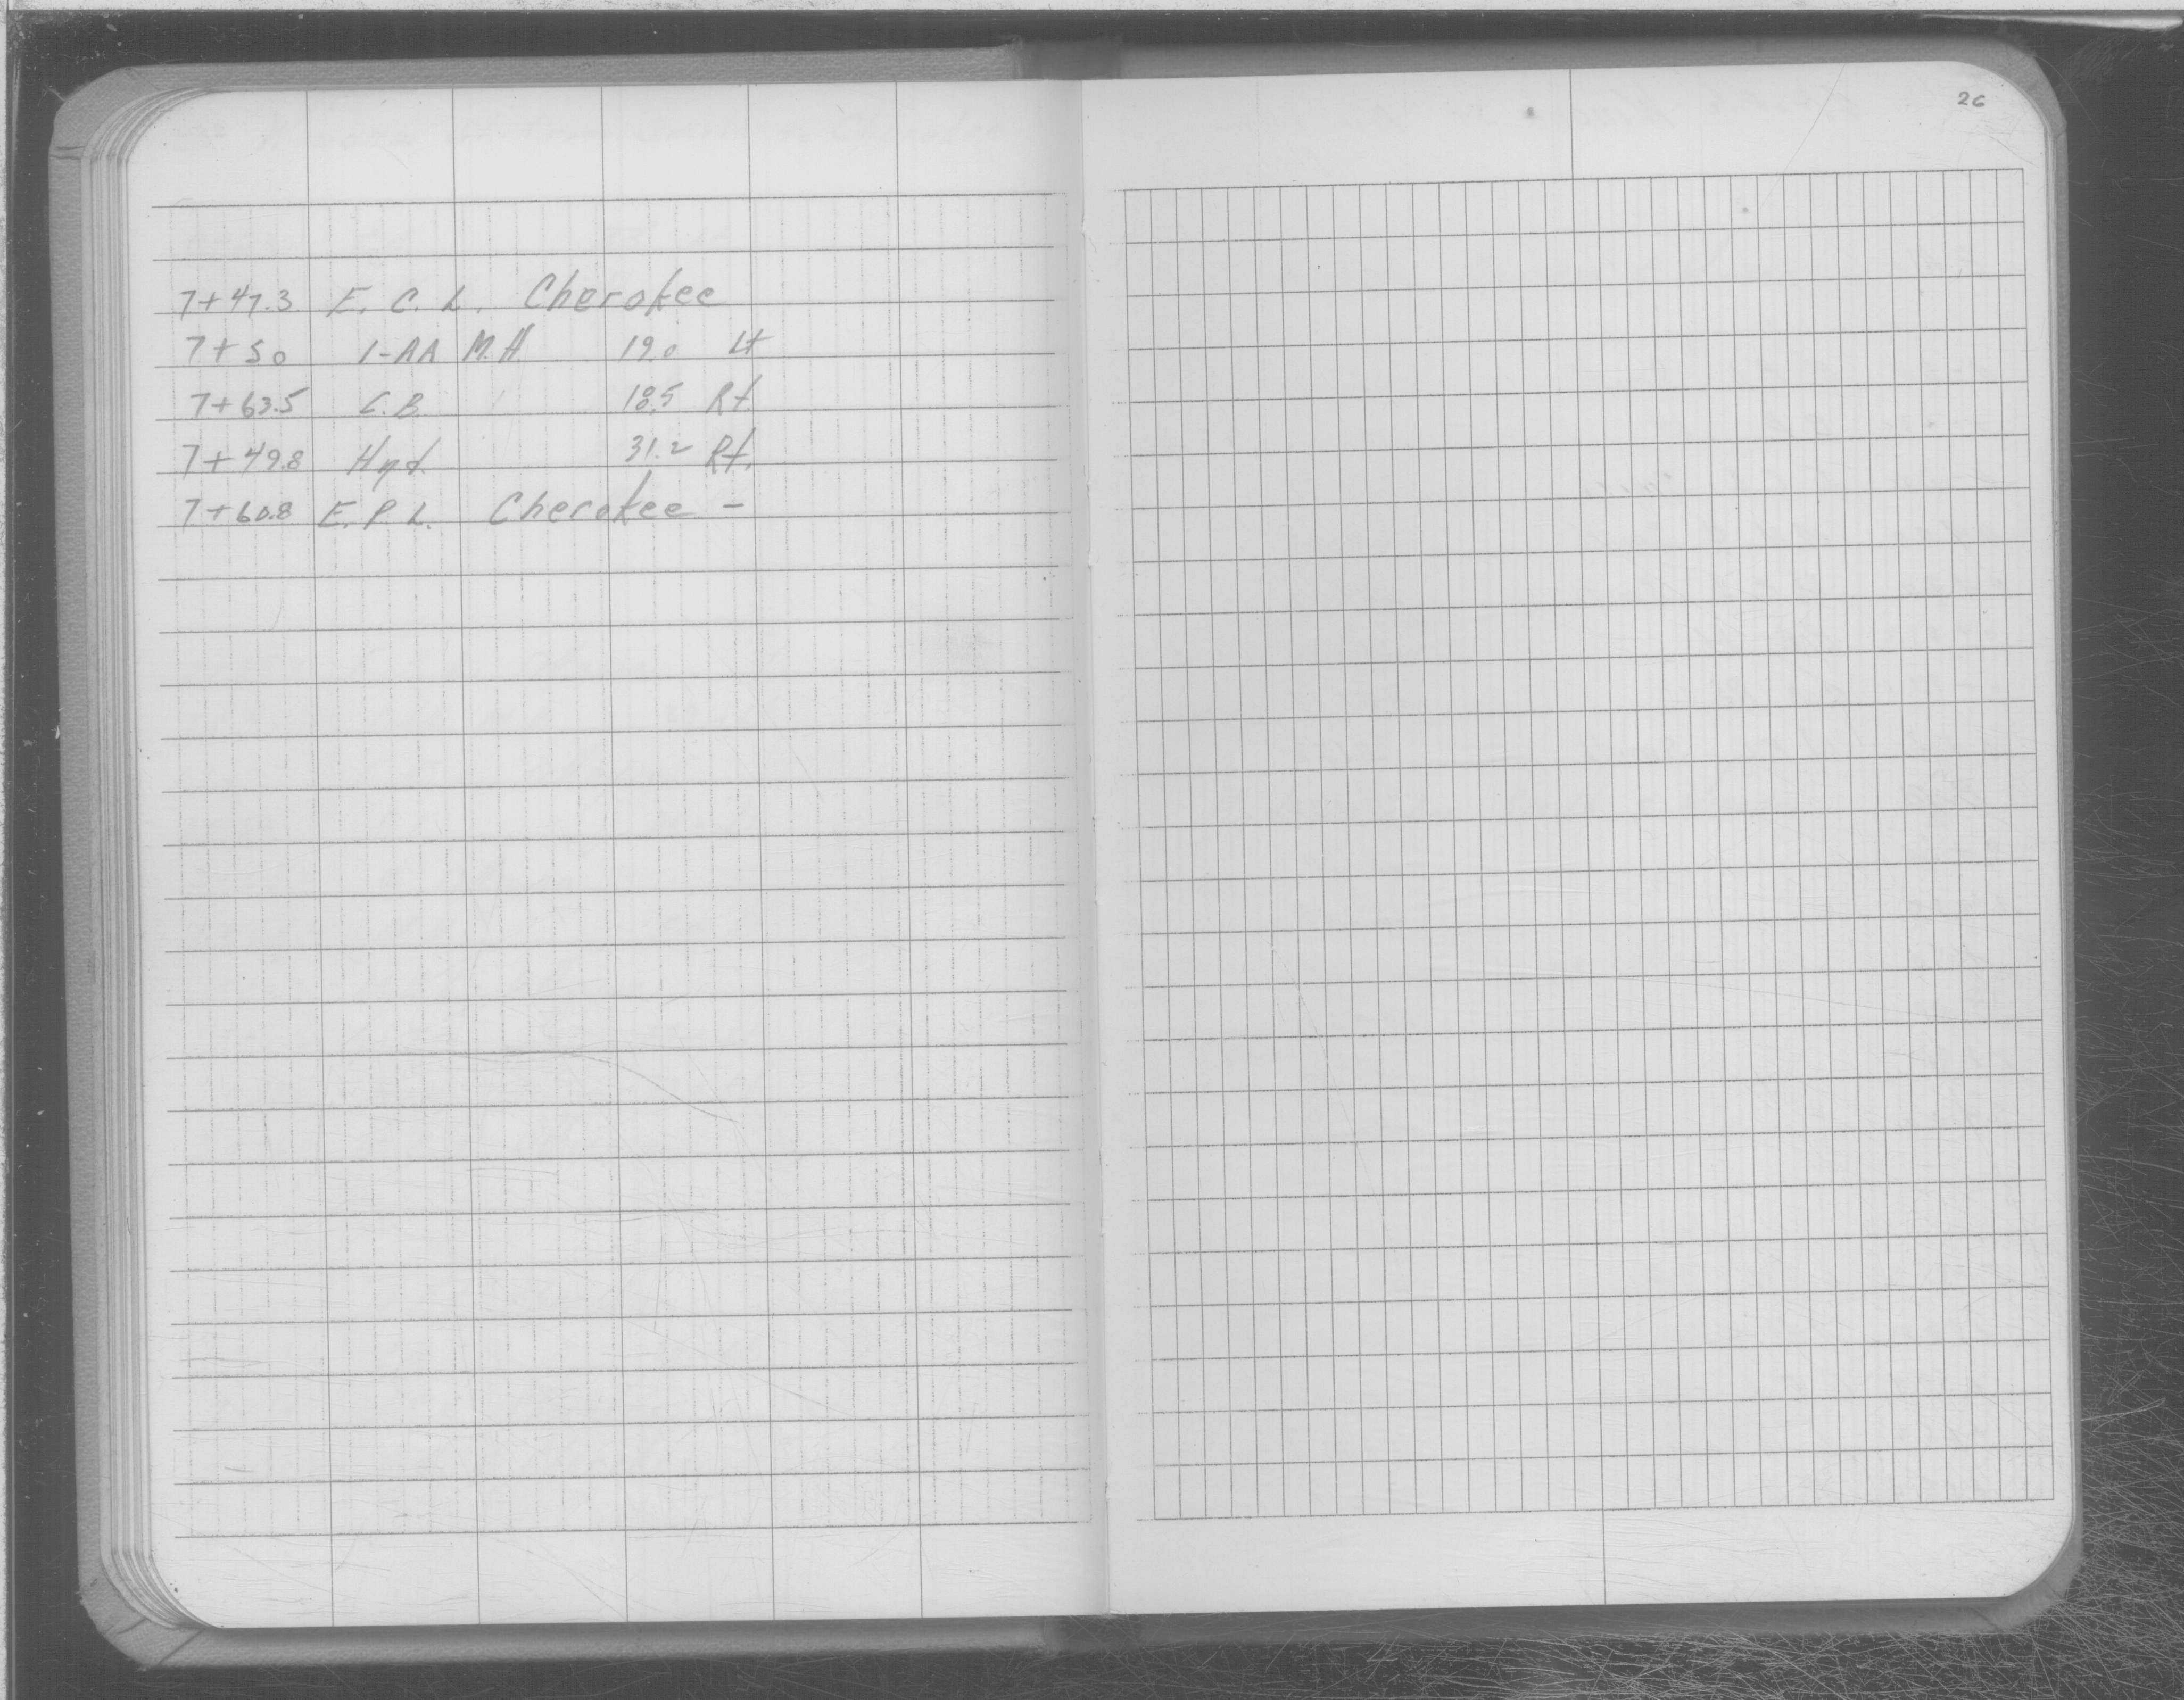 26
7+47.3 E. C. L. Cherokee
7+50 1-AA M.H. 19.0 Lt
7+63.5 C.B. 18.5 Rt.
7+49.8 Hyd. 31.2 Rt.
7+60.8 E. P. L. Cherokee -